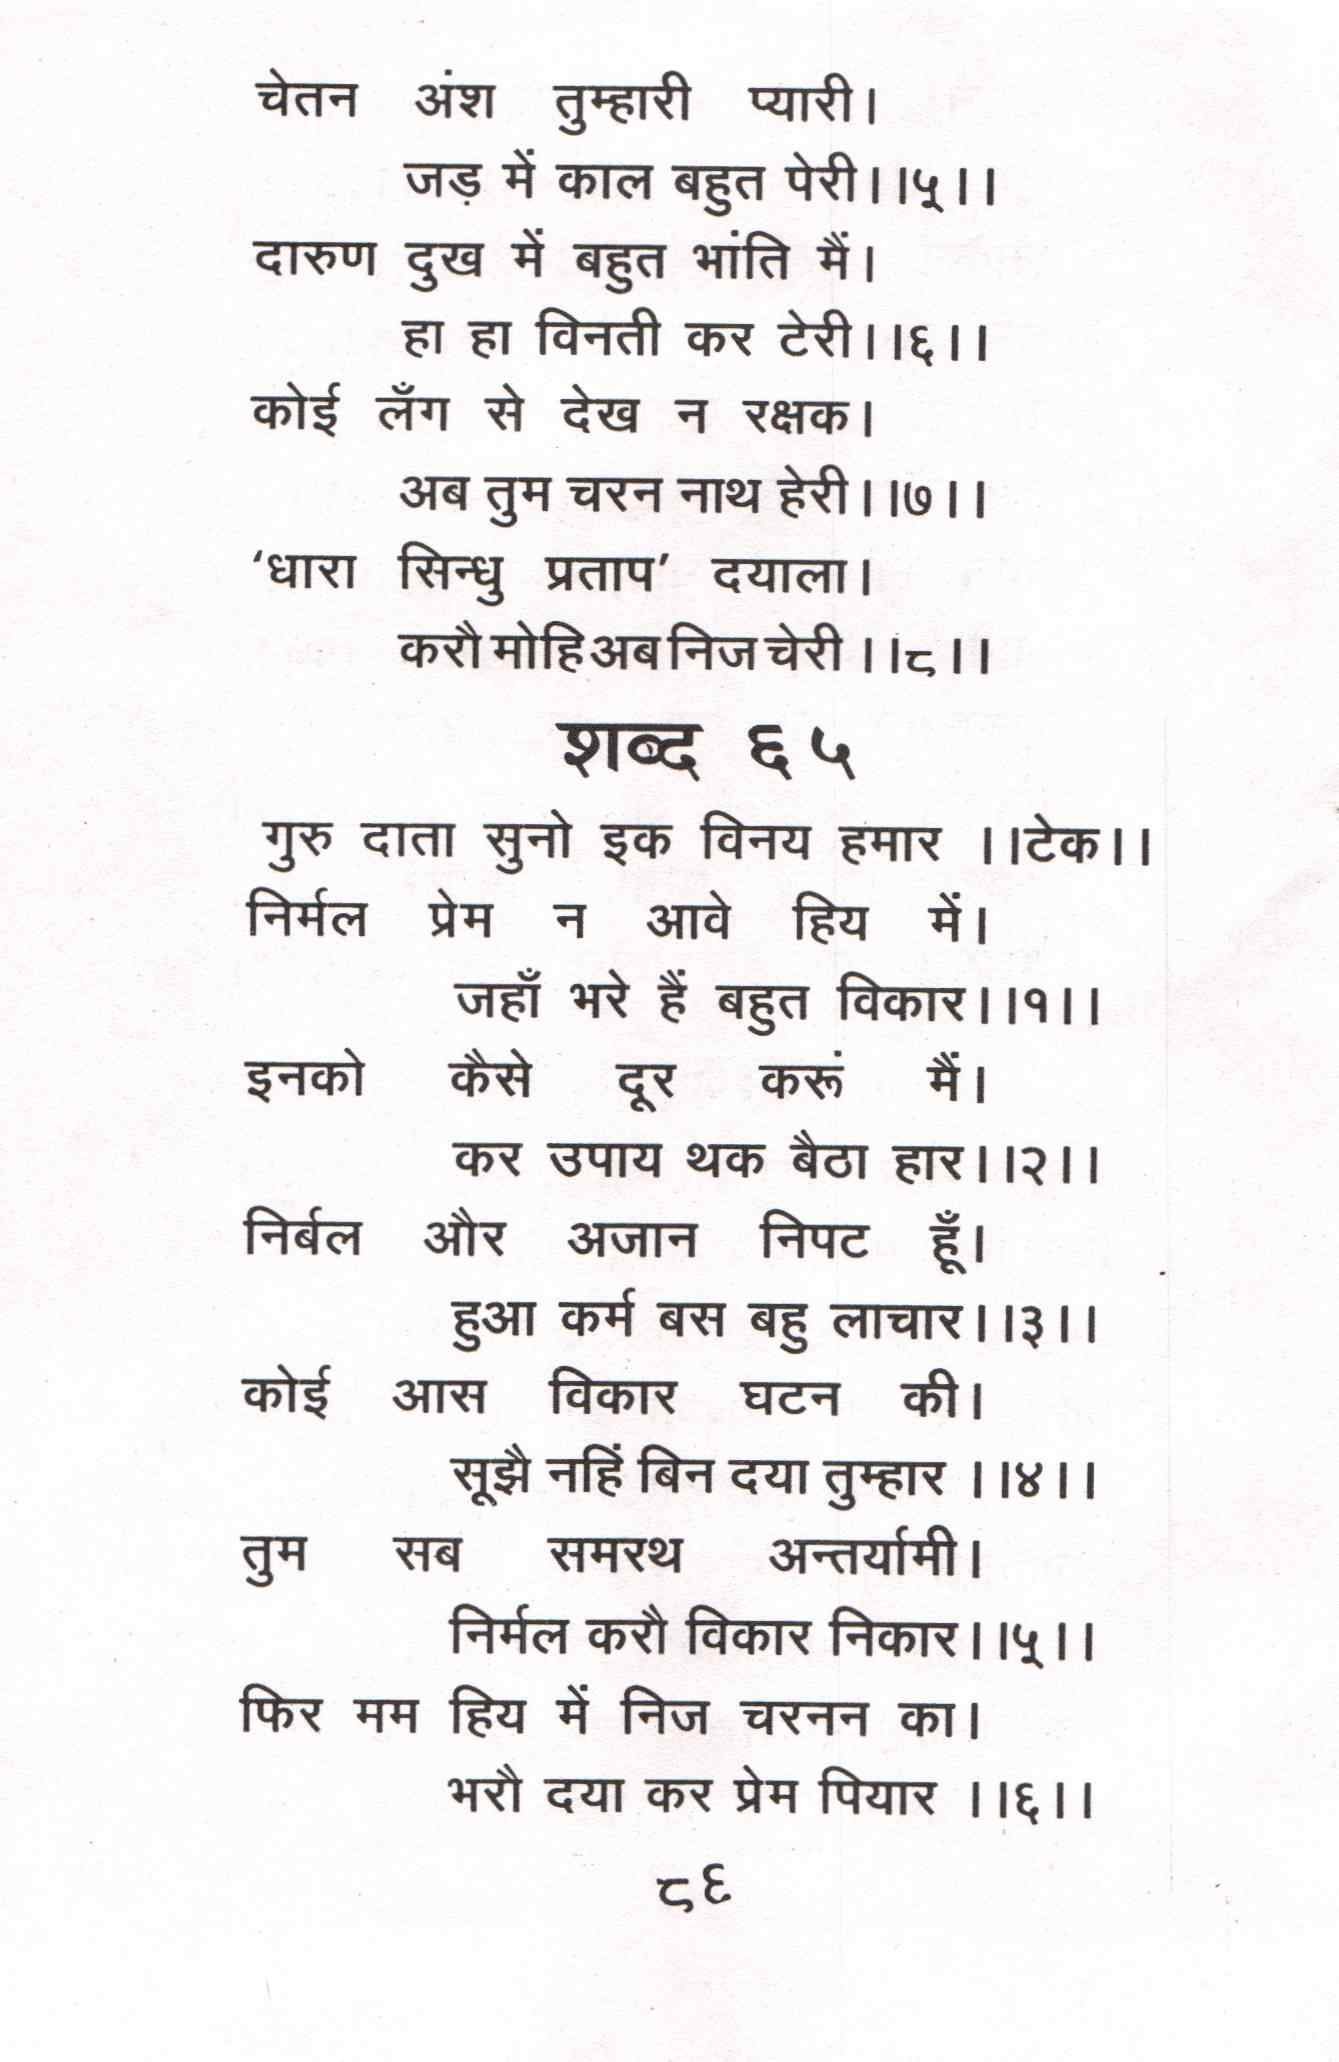 चेतन अंश तुम्हारी प्यारी।
जड़ में काल बहुत पेरी।।५।।
दारुण दुख में बहुत भांति मैं।
हा हा विनती कर टेरी।।६।।
कोई लँग से देख न रक्षक।
अब तुम चरन नाथ हेरी।।७।।
‘धारा सिन्धु प्रताप’ दयाला।
करौ मोहि अब निज चेरी।।८।।
शब्द ६५
गुरु दाता सुनो इक विनय हमार ।।टेक।।
निर्मल प्रेम न आवे हिय में।
जहाँ भरे हैं बहुत विकार।।१।।
इनको कैसे दूर करूं मैं।
कर उपाय थक बैठा हार।।२।।
निर्बल और अजान निपट हूँ।
हुआ कर्म बस बहु लाचार।।३।।
कोई आस विकार घटन की।
सूझै नहिं बिन दया तुम्हार ।।४।।
तुम सब समरथ अन्तर्यामी।
निर्मल करौ विकार निकार।।५।।
फिर मम हिय में निज चरनन का।
भरौ दया कर प्रेम पियार ।।६।।
८६